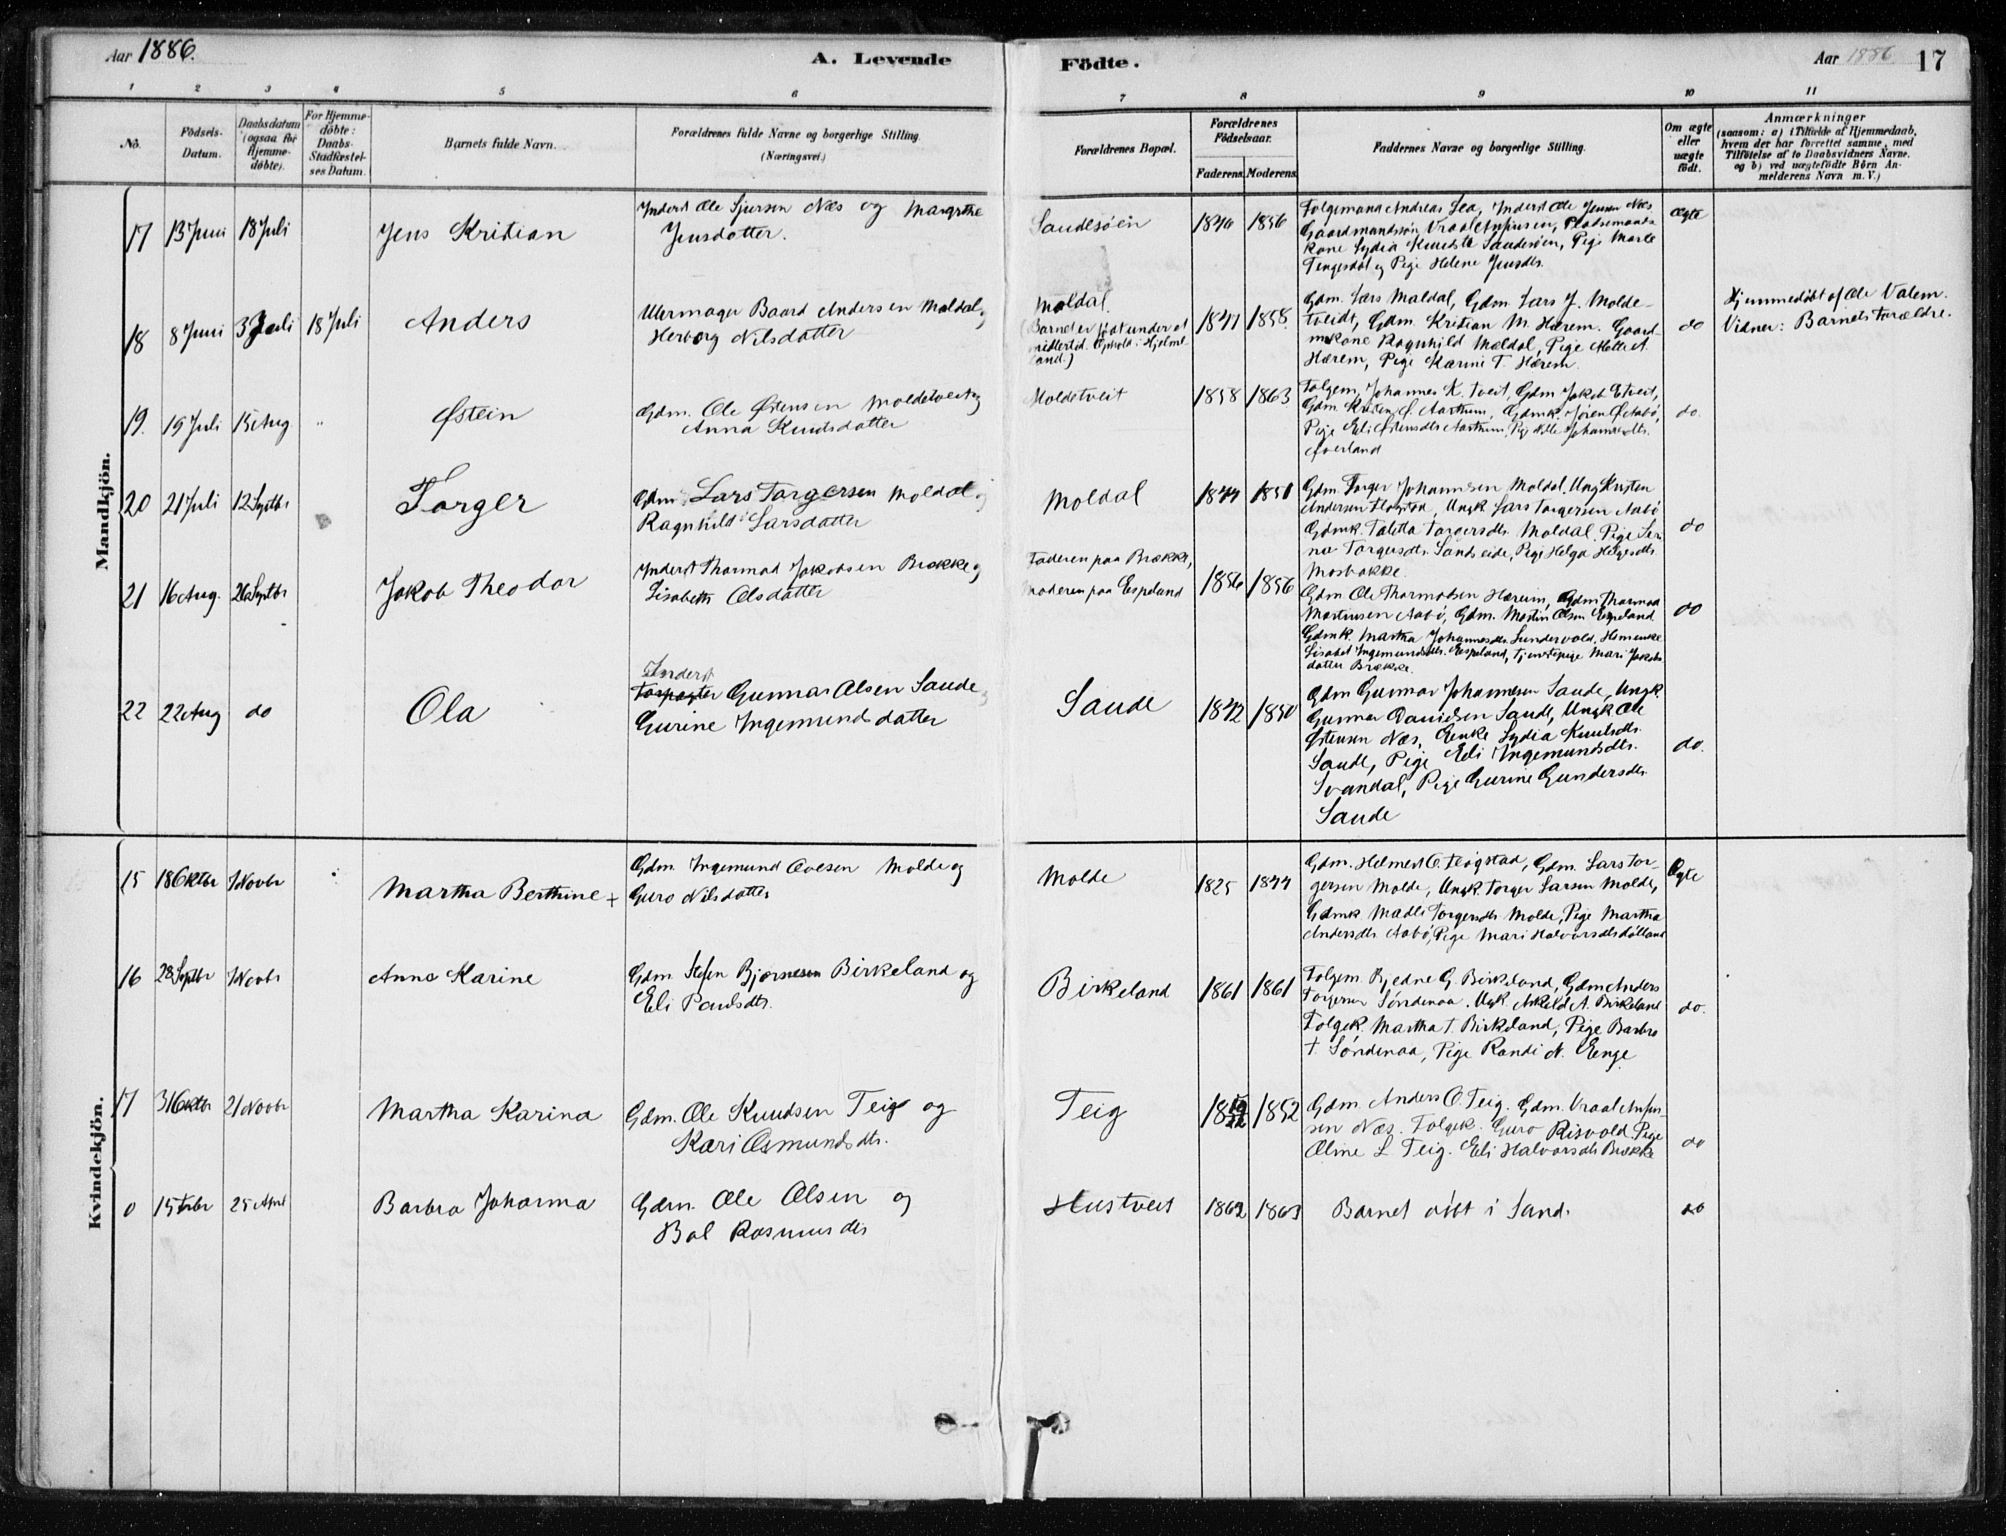 Aar 1886.
A. Levende
Födte.
Aar 1886
17
1 2 3 4 5 6 7 8 9 10 11
No.
Födsels-
Datum.
Daabsdatum
(ogsaa for
Hjemme-
döbte).
For Hjemme-
döbte:
Daabs-
Stadfæstel-
ses Datum.
Barnets fulde Navn.
Forældrenes fulde Navne og borgerlige Stilling.
(Næringsvei.)
Forældrenes Bopæl.
Forældrenes
Födselsaar.
Faderens. Moderens.
Faddernes Navne og borgerlige Stilling.
Om ægte
eller
uægte
födt.
Anmærkninger
(saasom: a) i Tilfælde af Hjemmedaab,
hvem der har forrettet samme, med
Tilföielse af to Daabsvidners Navne,
og b) ved uægtefödte Börn An-
melderens Navn m. V.)
Mandkjön.
17 13 Juni 18 Juli
Jens Kristian
Inderst Ole Sjursen Næs og Margrethe
Jensdatter.
Saudesöen
1846 1856
Folgemand Andreas Lea, Inderst Ole Jensen Næs
Gaardmandssön Vraal Anfinsen, Pladsemands
kone Lydia Saudesöen, Pige Marte
Tengesdal og Pige Helene Jensdtr.
Ægte
18 8 Juni 3 Juli 18 Juli
Anders
Uhrmager Baard Andersen Moldal og
Herborg Nilsdatter
Moldal.
(Barnet er født under et
midlertid. Ophold i Hjelme-
land.)
1841 1858.
Gdm. Lars Maldal, Gdm Lars J. Molde-
tveidt, Gdm. Kristian M. Hærem. Gaard-
mkone Ragnhild Mældal, Pige Mette A.
Hærem, Pige Karine T. Hærem.
do
Hjemmedöbt af Ole Valem.
Vidner: Barnets Forældre.
19. 19 Juli 15 Aug "
Østein
Gdm. Ole Østensen Moldetveit og
Anna Knudsdatter
Moldetveit
1858 1863
Folgem, Johannes K. Tveit, Gdm Jakob Etveit,
Gdm Kristen Ø. Aarthum, Gdmk. Aabö,
Pige Eli Østensdtr Aarthum, Pige Johannesdtr.
Øverland
do.
20 21 Juli 12 Septbr
Torger
Gdm. Lars Torgersen Moldal og
Ragnhild Larsdatter
Moldal
1844 1851
Gdm. Torger Johannesen Moldal, Ung Kristen
Andersen Flogstad, Ungk Lars Torgersen Aabö
Gdmk. Taletta Torgersdtr. Moldal, Pige Ser-
na Torgersdtr. Sandseide, Pige Helga Helgesdtr
Mosbakke.
do
21 16 Aug. 26 Septbr
Jakob Theodor
Inderst Thormod Jakobsen Brække og
Lisabeth Olsdatter
Faderen paa Brække,
Moderen paa Espeland
1856 1856
Gdm Ole Thormodsen Hærem, Gdm Thormod
Martinsen Aabö, Gdm. Martin Olsen Espeland
Gdmk. Martha Johannesdtr. Sundervold,
Lisabet Ingemundsdtr. Espeland, Tjenestepige Mari Jakobs-
datter Brække.
do
22 22 Aug do
Ola
Inderst
Forpagter Gunnar Olsen Saude og
Gurine Ingemunds datter
Saude
1842 1850
Gdm Gunnar Johannesen Saude, Ungk.
Gunnar Danielsen Saude, Ungk Ole
Østensen Næs, Enke Lydia Knutsdtr.
Saude, Pige Eli Ingemundsdtr.
Svandal, Pige Gurine Gundersdtr.
Saude
do.
Kvindekjön.
15 18 Oktbr 1 Novbr
Martha Berthine +
Gdm. Ingemund Ovesen Molde og
Guro Nilsdatter
Molde
1825 1844
Gdm. Helmer O. Flogstad, Gdm. Lars Tor-
gersen Molde, Ungk. Torger Larsen Molde,
Gdmk. Madli Torgersdtr Molde, Pige Martha
Andersdtr Aabö, Pige Mari Halvorsdtr
Ægte
16 28 Septbr 1 Novbr
Anna Karine
Gdm Steffen Bjørnesen Birkeland og
Eli Paulsdtr.
Birkeland
1861 1861
Folgem. Bjedne G. Birkeland, Gdm Anders
Torgersen Søndenaa. Ungk. A. Birkeland
Folgek. Martha T. Birkeland, Pige Barbro
T. Søndenaa, Pige Randi N. Eenge
do.
17 31 Oktbr 21 Novbr
Martha Karina
Gdm. Ole Knudsen Teig og
Kari Osmundsdtr.
Teig
1852 1852
Gdm. Anders O. Teig. Gdm. Vraal Anfin-
sen Næs. Folgek. Guro Risvold Pige
Oline L Teig. Eli Halvorsdtr Brække
do
0 15 Febr 25 April
Barbra Johanna
Gdm. Ole Olsen og
Bol Rasmusdtr
Hustveit
1862 1863
Barnet döbt i Sand.
do